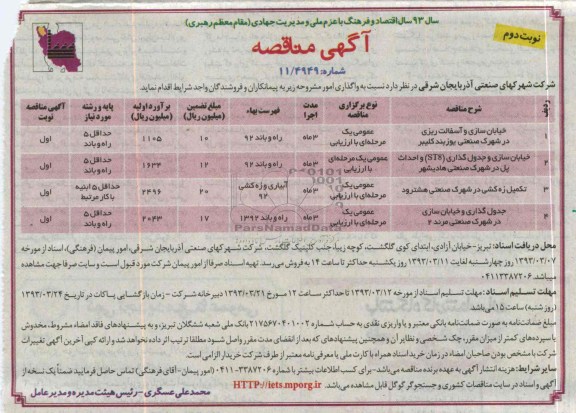 سال ۹۳ سال اقتصاد و فرهنگ با عزم ملی و مدیریت جهادی (مقام معظم رهبری)
نوبت دوم
آگهی مناقصه
شماره: ۱۱/۴۹۴۹
شرکت شهرکهای صنعتی آذربایجان شرقی در نظر دارد نسبت به واگذاری امور مشروحه زیر به پیمانکاران و فروشندگان واجد شرایط اقدام نماید.
ردیف شرح مناقصه نوع برگزاری مناقصه مدت اجرا فهرست بهاء مبلغ تضمین (میلیون ریال) برآورد اولیه (میلیون ریال) پایه و رشته مورد نیاز آگهی مناقصه نوبت
۱ خیابان سازی و آسفالت ریزی در شهرک صنعتی یوزبند کلیبر عمومی یک مرحله‌ای با ارزیابی ۳ماه راه و باند ۹۲ ۱۰ ۱۱۰۵ حداقل ۵ راه و باند اول
۲ خیابان سازی و جدول گذاری (ST8) و احداث پل در شهرک صنعتی هادیشهر عمومی یک مرحله‌ای با ارزیابی ۳ماه راه و باند ۹۲ ۱۲ ۱۶۳۴ حداقل ۵ راه و باند اول
۳ تکمیل زه کشی در شهرک صنعتی هشترود عمومی یک مرحله‌ای با ارزیابی ۳ماه آبیاری و زه کشی ۹۲ ۲۰ ۲۴۹۶ حداقل ۵ ابنیه با کار مرتبط اول
۴ جدول گذاری و خیابان سازی در شهرک صنعتی مرند ۲ عمومی یک مرحله‌ای با ارزیابی ۳ماه راه و باند ۱۳۹۲ ۱۷ ۲۰۴۳ حداقل ۵ راه و باند اول
ParsNamadData
محل دریافت اسناد: تبریز-خیابان آزادی، ابتدای کوی گلگشت، کوچه زیبا، جنب کلینیک گلگشت، شرکت شهرکهای صنعتی آذربایجان شرقی، امور پیمان (فرهنگی)، اسناد از مورخه
۱۳۹۳/۰۳/۰۷ روز چهارشنبه لغایت ۱۳۹۳/۰۳/۱۱ روز یکشنبه حداکثر تا ساعت ۱۴ به فروش می‌رسد. تهیه اسناد صرفا از امور پیمان شرکت مورد قبول است و سایت صرفا جهت مشاهده
میباشد. ۰۴۱۱۳۳۸۷۲۰۶
مهلت تسلیم اسناد: مهلت تسلیم اسناد از مورخه ۱۳۹۳/۰۳/۱۲ تا حداکثر ساعت ۱۲ مورخ ۱۳۹۳/۰۳/۲۱ دبیرخانه شرکت - زمان بازگشایی پاکات در تاریخ ۱۳۹۳/۰۳/۲۴
(روز شنبه) ساعت ۱۵ می‌باشد.
مبلغ ضمانت‌نامه به صورت ضمانت‌نامه بانکی معتبر و یا واریزی نقدی به حساب شماره ۲۱۷۵۶۷۰۴۰۱۰۰۲ بانک ملی شعبه ششگلان تبریز، و به پیشنهادهای فاقد امضاء مشروط، مخدوش
یا سپرده‌های کمتر از میزان مقرر، چک شخصی و نظایر آن و همچنین پیشنهادهای که بعد از انقضای مدت مقرر واصل شود مطلقا ترتیب اثر داده نخواهد شد و ارائه کپی آخرین آگهی تغییرات
شرکت با مشخص بودن صاحبان امضاء در زمان خرید اسناد همراه با کارت ملی یا معرفی‌نامه معتبر از طرف شرکت خریدار الزامی است.
سایر شرایط: هزینه انتشار آگهی به عهده برنده مناقصه می‌باشد- برای کسب اطلاعات بیشتر با شماره ۳۳۸۷۲۰۶-۰۴۱۱ (امور پیمان- آقای فرهنگی) تماس حاصل فرمایید ضمناً یک نسخه از
آگهی و اسناد در سایت مناقصات کشوری و جستجوگر گوگل قابل مشاهده می‌باشد.
HTTP://iets.mporg.ir
محمد علی عسگری - رئیس هیئت مدیره و مدیر عامل